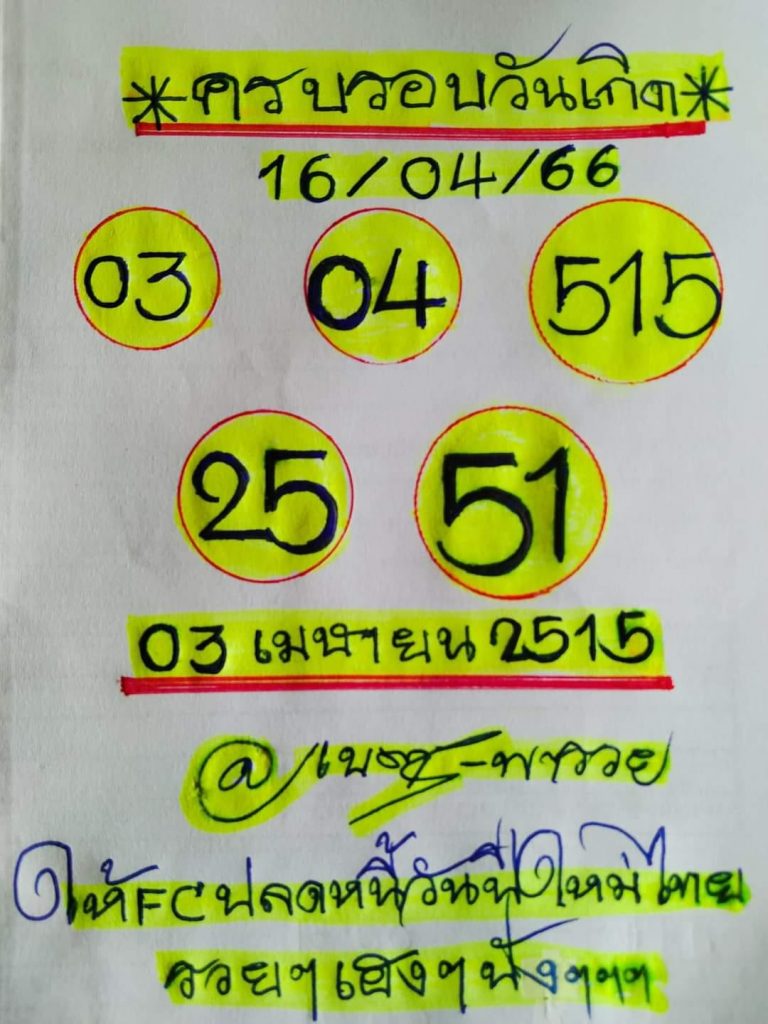 *ครบรอบวันเกิด*
16/04/66
03 04 515
25 51
03 เมษายน 2515
@เบสซ-พารวย
ให้FCปลดหนี้วันปีใหม่ไทย
รวยๆเฮงๆปังๆๆๆ